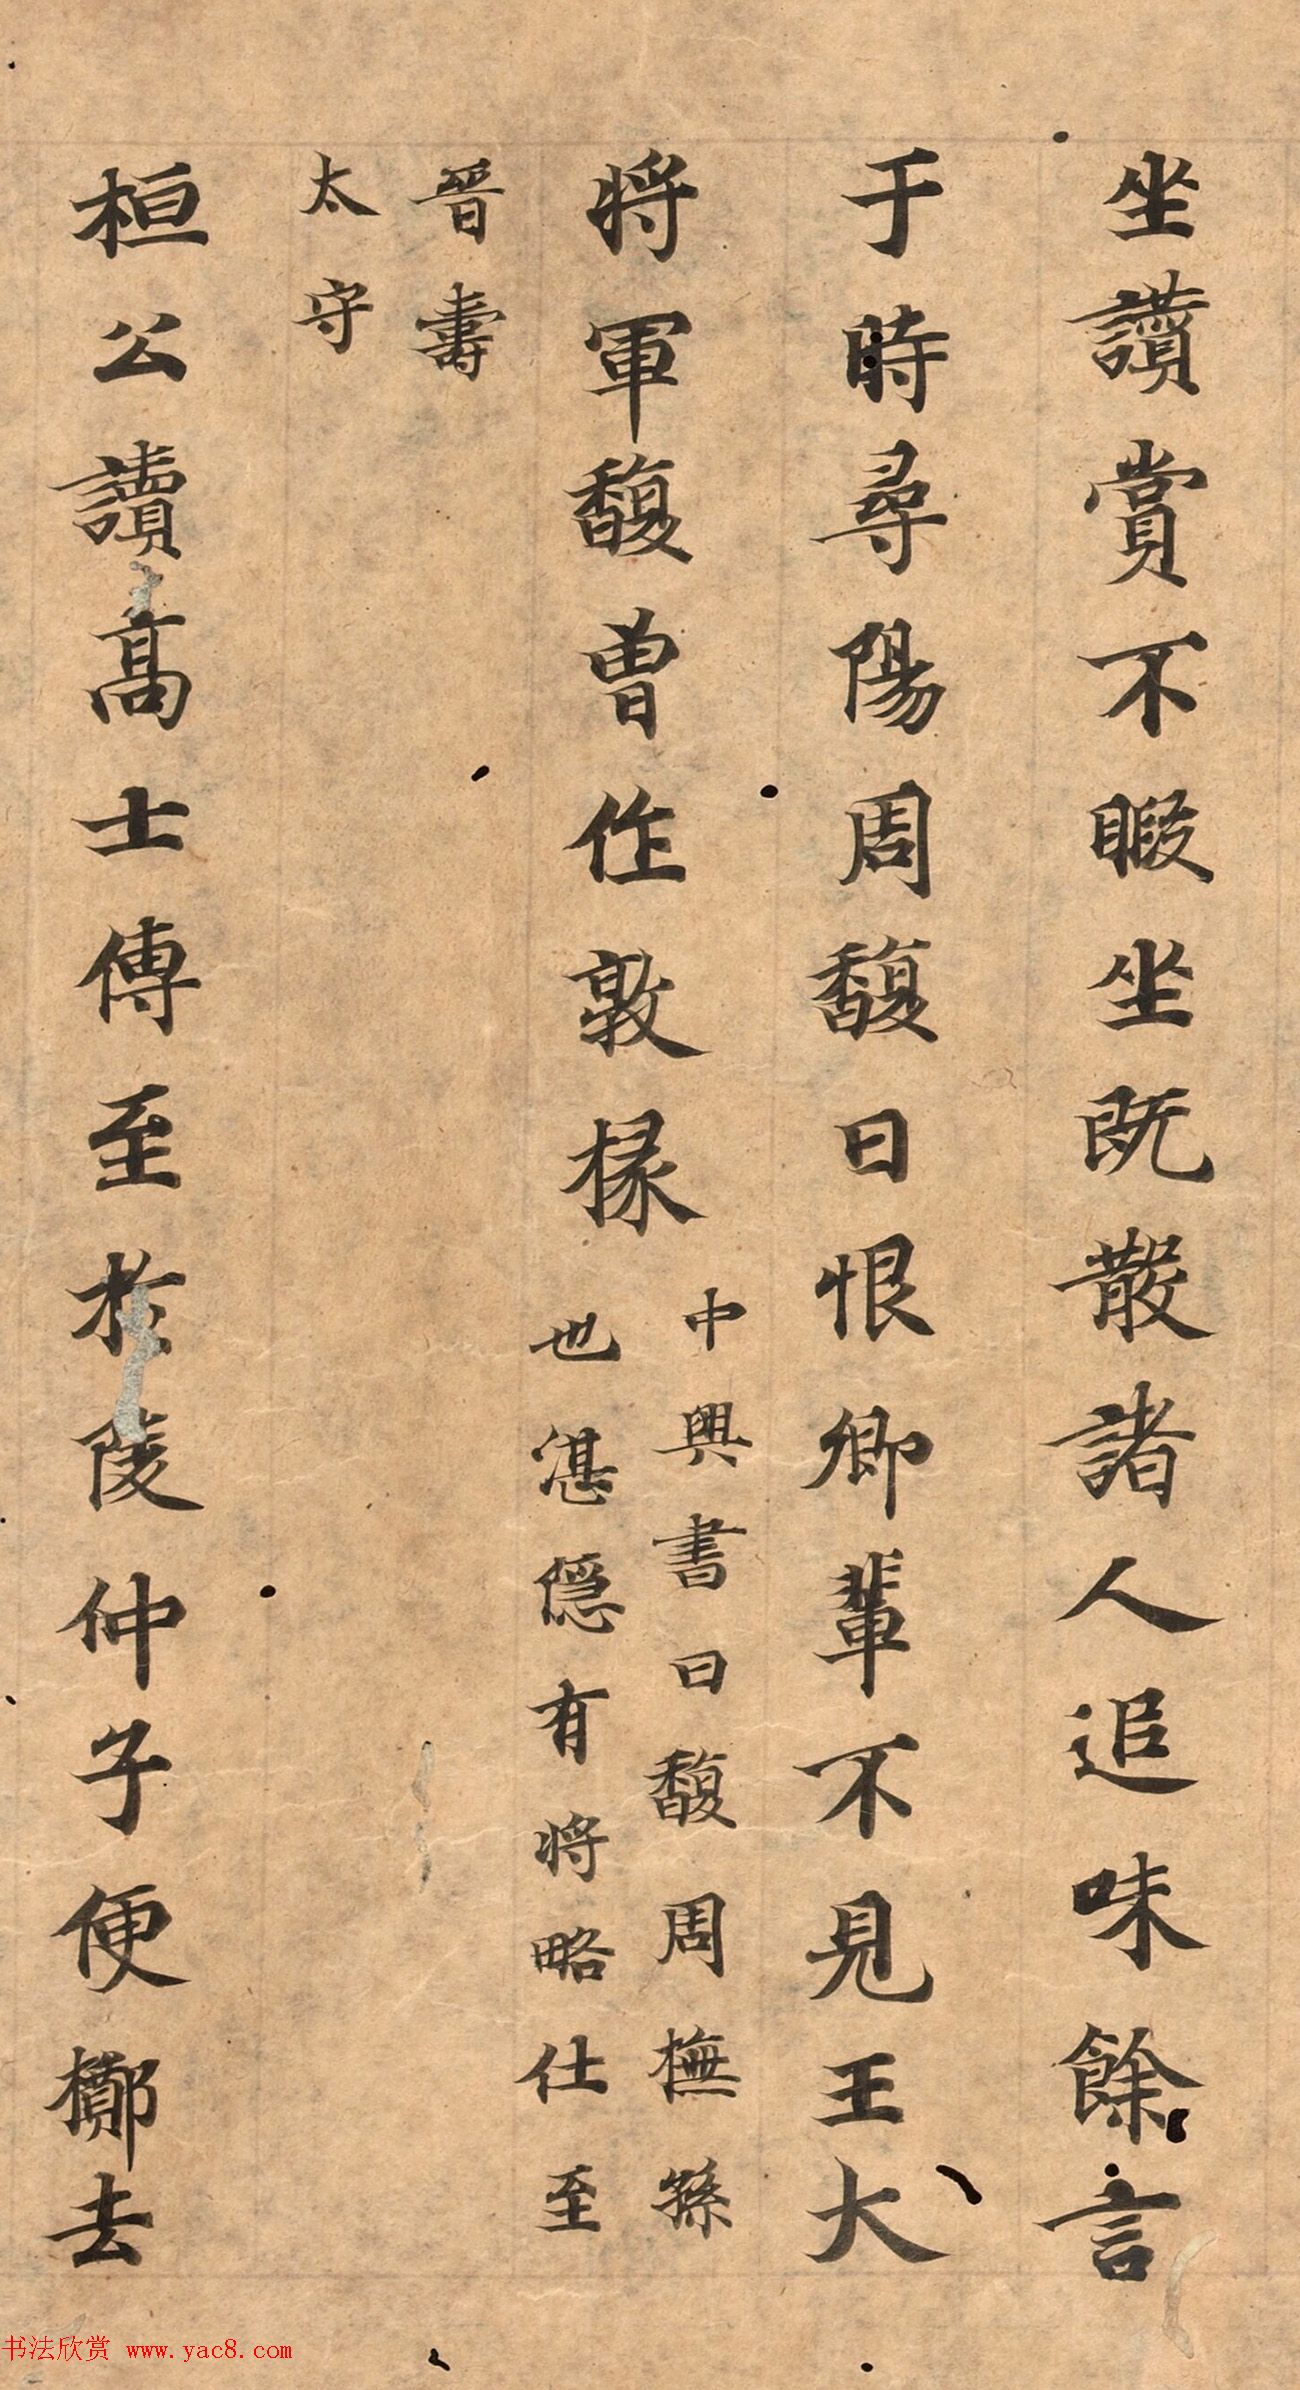 坐讚賞不暇坐既散諸人追味餘言
于時尋陽周馥曰恨卿輩不見王大
將軍馥曾作敦掾
中興書曰馥周撫孫
也湛隱有將略仕至
晉壽
太守
桓公讀高士傳至於陵仲子便擲去
书法欣赏 www.yac8.com